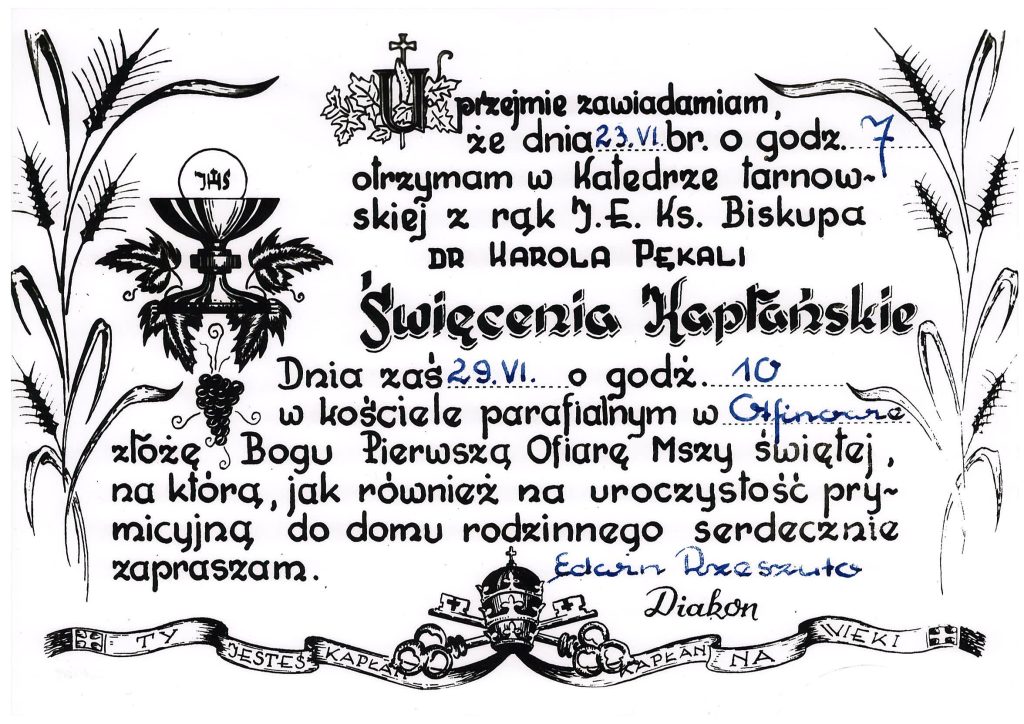 Uprzejmie zawiadamiam,
że dnia 23.VI. br. o godz. 7
otrzymam w Katedrze tarnow-
skiej z rąk J.E. Ks. Biskupa
DR KAROLA PĘKALI
Święcenia Kapłańskie
Dnia zaś 29.VI. o godz. 10
w kościele parafialnym w Otfinowie
złożę Bogu Pierwszą Ofiarę Mszy świętej,
na którą, jak również na uroczystość pry-
micyjną do domu rodzinnego serdecznie
zapraszam.
Edwin Rzeszuto
Diakon
JHS
TY JESTEŚ KAPŁAN KAPŁAN NA WIEKI